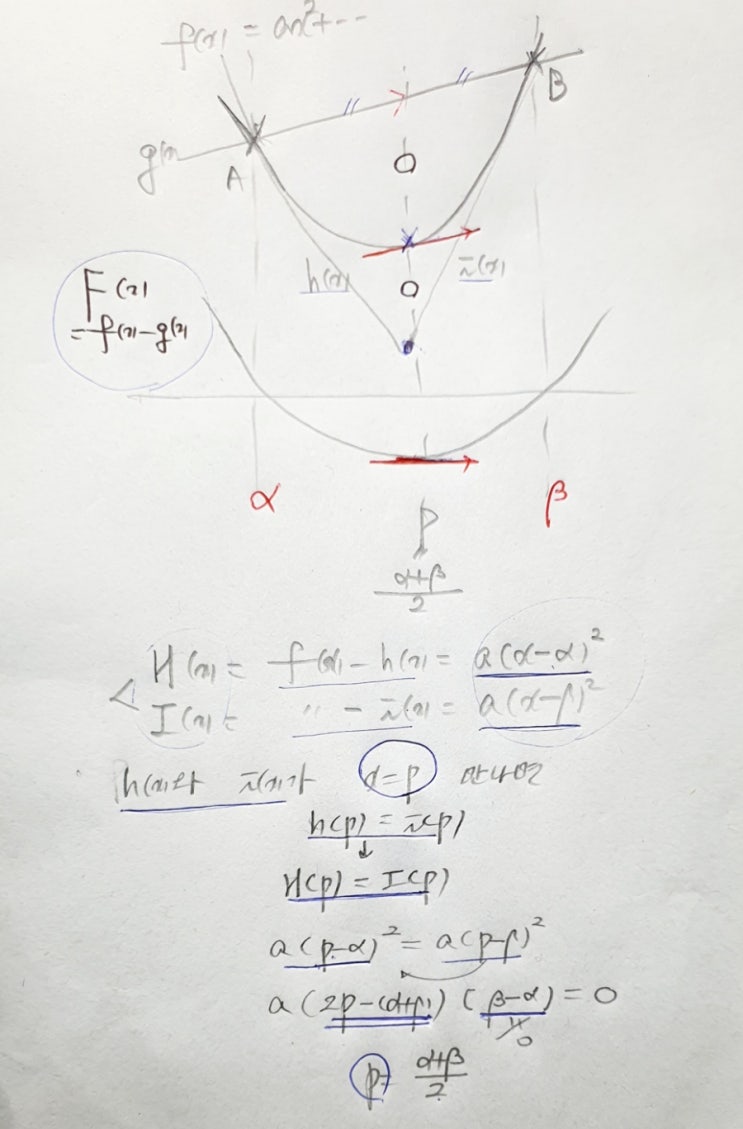 f(x) = ax²+---
B
g(x)
A
h(x)
i(x)
F(x)
=f(x)-g(x)
α
β
p
α+β
2
H(x) = f(x) - h(x) = a(x-α)²
I(x) = 〃 - i(x) = a(x-β)²
h(x)와 i(x)가 x=p 만나면
h(p) = i(p)
↓
H(p) = I(p)
a(p-α)² = a(p-β)²
a(2p-(α+β))(β-α) = 0
0
p= α+β
2